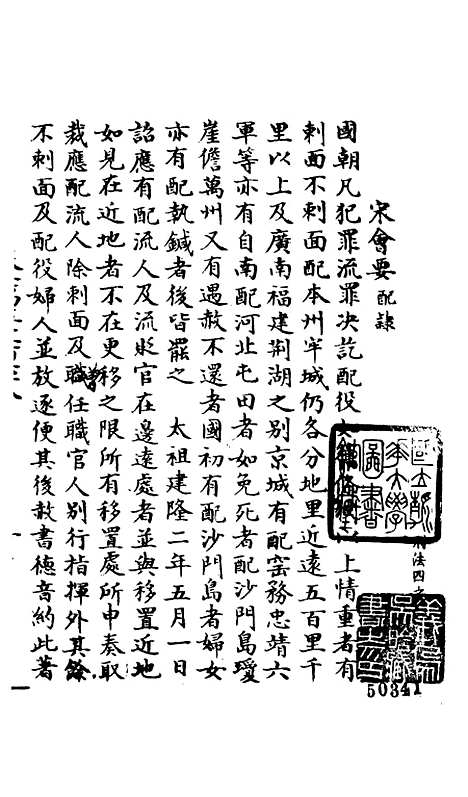 宋會要 配隷
國朝凡犯罪流罪决訖配役 上情重者有
刺面不刺面配本州牢城仍各分地里近遠五百里千
里以上及廣南福建荆湖之别京城有配窑務忠靖六
軍等亦有自南配河北屯田者如免死者配沙門島瓊
崖儋萬州又有遇赦不還者國初有配沙門島者婦女
亦有配執鍼者後皆罷之 太祖建隆二年五月一日
詔應有配流人及流貶官在邊遠處者並與移置近地
如見在近地者不在更移之限所有移置處所申奏取
裁應配流人除刺面及職任職官人别行指揮外其餘
不刺面及配役婦人並放逐便其後赦書德音約此著
國立北平圖書
法四之
50341
一